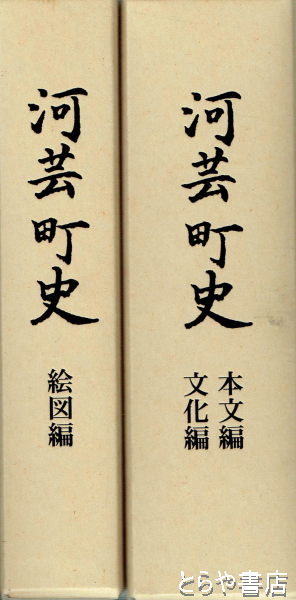 河芸町史
本文編
文化編
河芸町史
絵図編
とらや書店